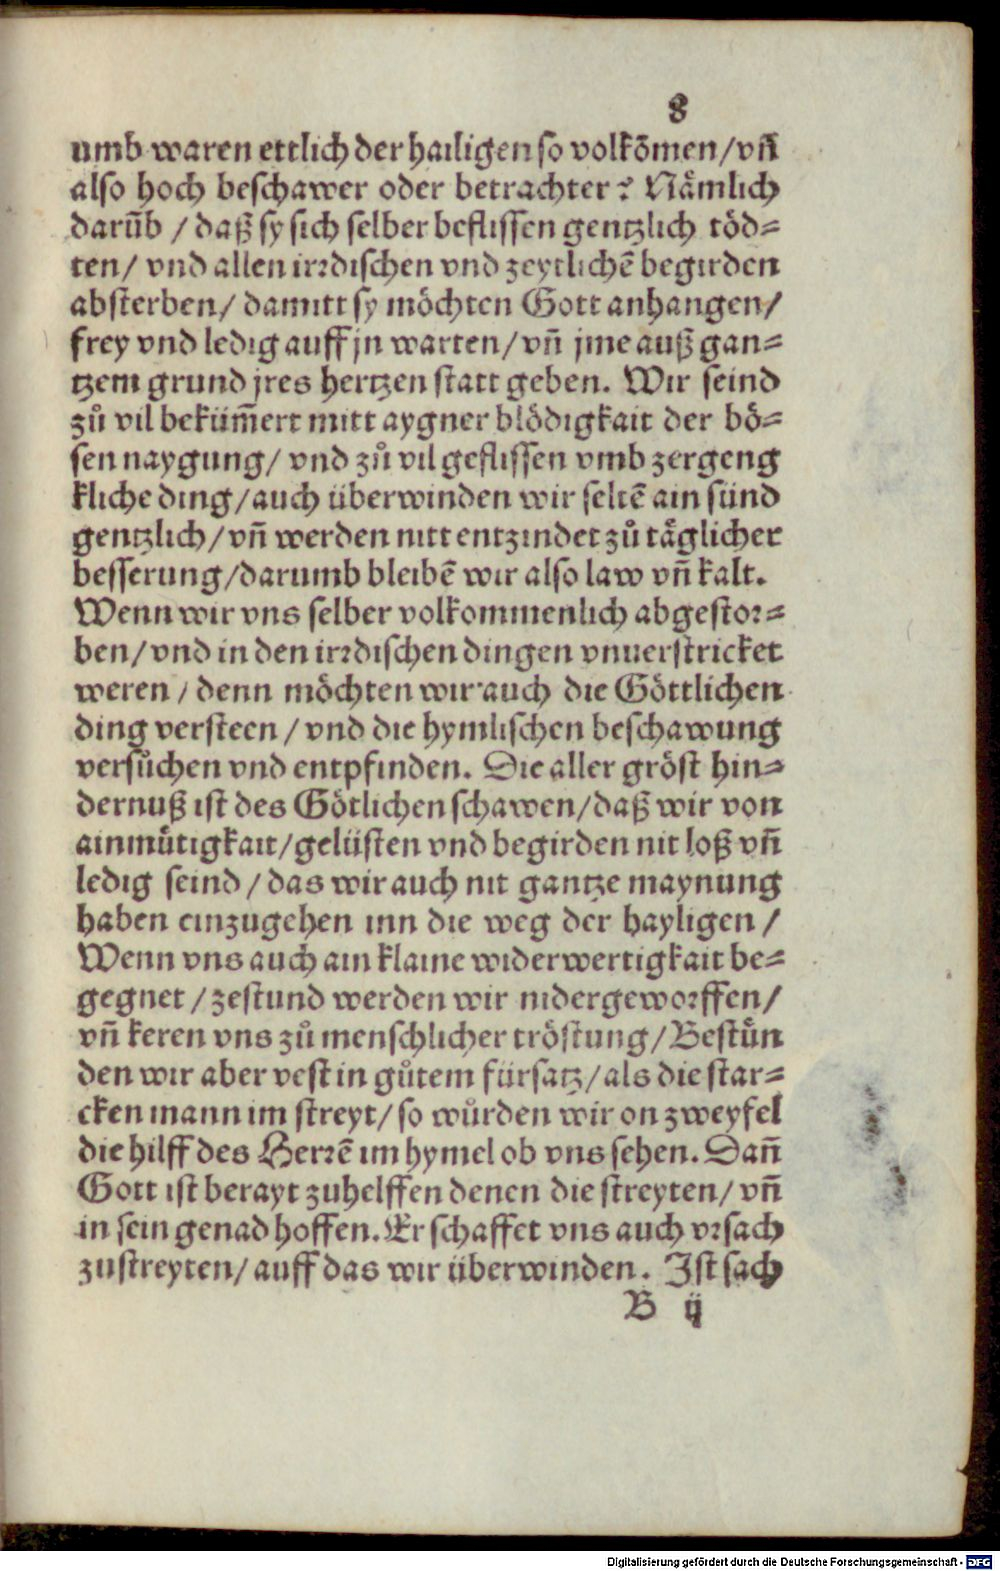 8
umb waren ettlich der hailigen so volkõmen/vñ
also hoch beschawer oder betrachter? Nämlich
darũb / daß sy sich selber beflissen gentzlich töd⸗
ten/ vnd allen irrdischen vnd zeytlichẽ begirden
absterben/ damitt sy möchten Gott anhangen/
frey vnd ledig auff jn warten/ vñ jme auß gan⸗
tzem grund jres hertzen statt geben. Wir seind
zů vil bekům̃ert mitt aygner blödigkait der bö⸗
sen naygung/ vnd zů vil geflissen vmb zergeng
kliche ding/auch überwinden wir seltẽ ain sünd
gentzlich/vñ werden nitt entzindet zů täglicher
besserung/darumb bleibẽ wir also law vñ kalt.
Wenn wir vns selber volkommenlich abgestor⸗
ben/vnd in den irrdischen dingen vnuerstricket
weren / denn möchten wir auch die Göttlichen
ding versteen / vnd die hymlischen beschawung
versůchen vnd entpfinden. Die aller gröst hin⸗
dernuß ist des Götlichen schawen/daß wir von
ainmůtigkait/gelüsten vnd begirden nit loß vñ
ledig seind / das wir auch nit gantze maynung
haben einzugehen inn die weg der hayligen /
Wenn vns auch ain klaine widerwertigkait be⸗
gegnet / zestund werden wir nidergeworffen/
vñ keren vns zů menschlicher tröstung/ Bestůn
den wir aber vest in gůtem fürsatz/ als die star⸗
cken mann im streyt/ so wůrden wir on zweyfel
die hilff des Herrẽ im hymel ob vns sehen. Dañ
Gott ist berayt zuhelffen denen die streyten/ vñ
in sein genad hoffen. Er schaffet vns auch vrsach
zustreyten/ auff das wir überwinden. Ist sach
B ij
Digitalisierung gefördert durch die Deutsche Forschungsgemeinschaft - DFG